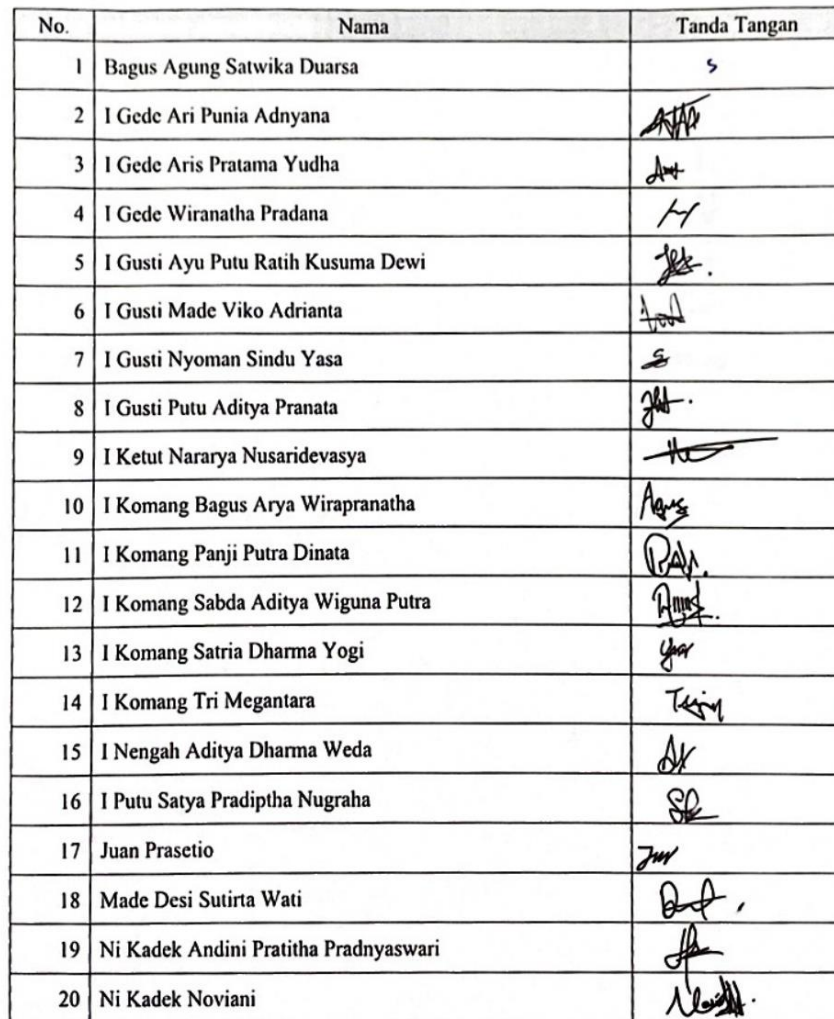 No. Nama Tanda Tangan
1 Bagus Agung Satwika Duarsa s
2 I Gede Ari Punia Adnyana
3 I Gede Aris Pratama Yudha
4 I Gede Wiranatha Pradana
5 I Gusti Ayu Putu Ratih Kusuma Dewi
6 I Gusti Made Viko Adrianta
7 I Gusti Nyoman Sindu Yasa
8 I Gusti Putu Aditya Pranata
9 I Ketut Nararya Nusaridevasya
10 I Komang Bagus Arya Wirapranatha
11 I Komang Panji Putra Dinata
12 I Komang Sabda Aditya Wiguna Putra
13 I Komang Satria Dharma Yogi
14 I Komang Tri Megantara
15 I Nengah Aditya Dharma Weda
16 I Putu Satya Pradiptha Nugraha
17 Juan Prasetio
18 Made Desi Sutirta Wati
19 Ni Kadek Andini Pratitha Pradnyaswari
20 Ni Kadek Noviani